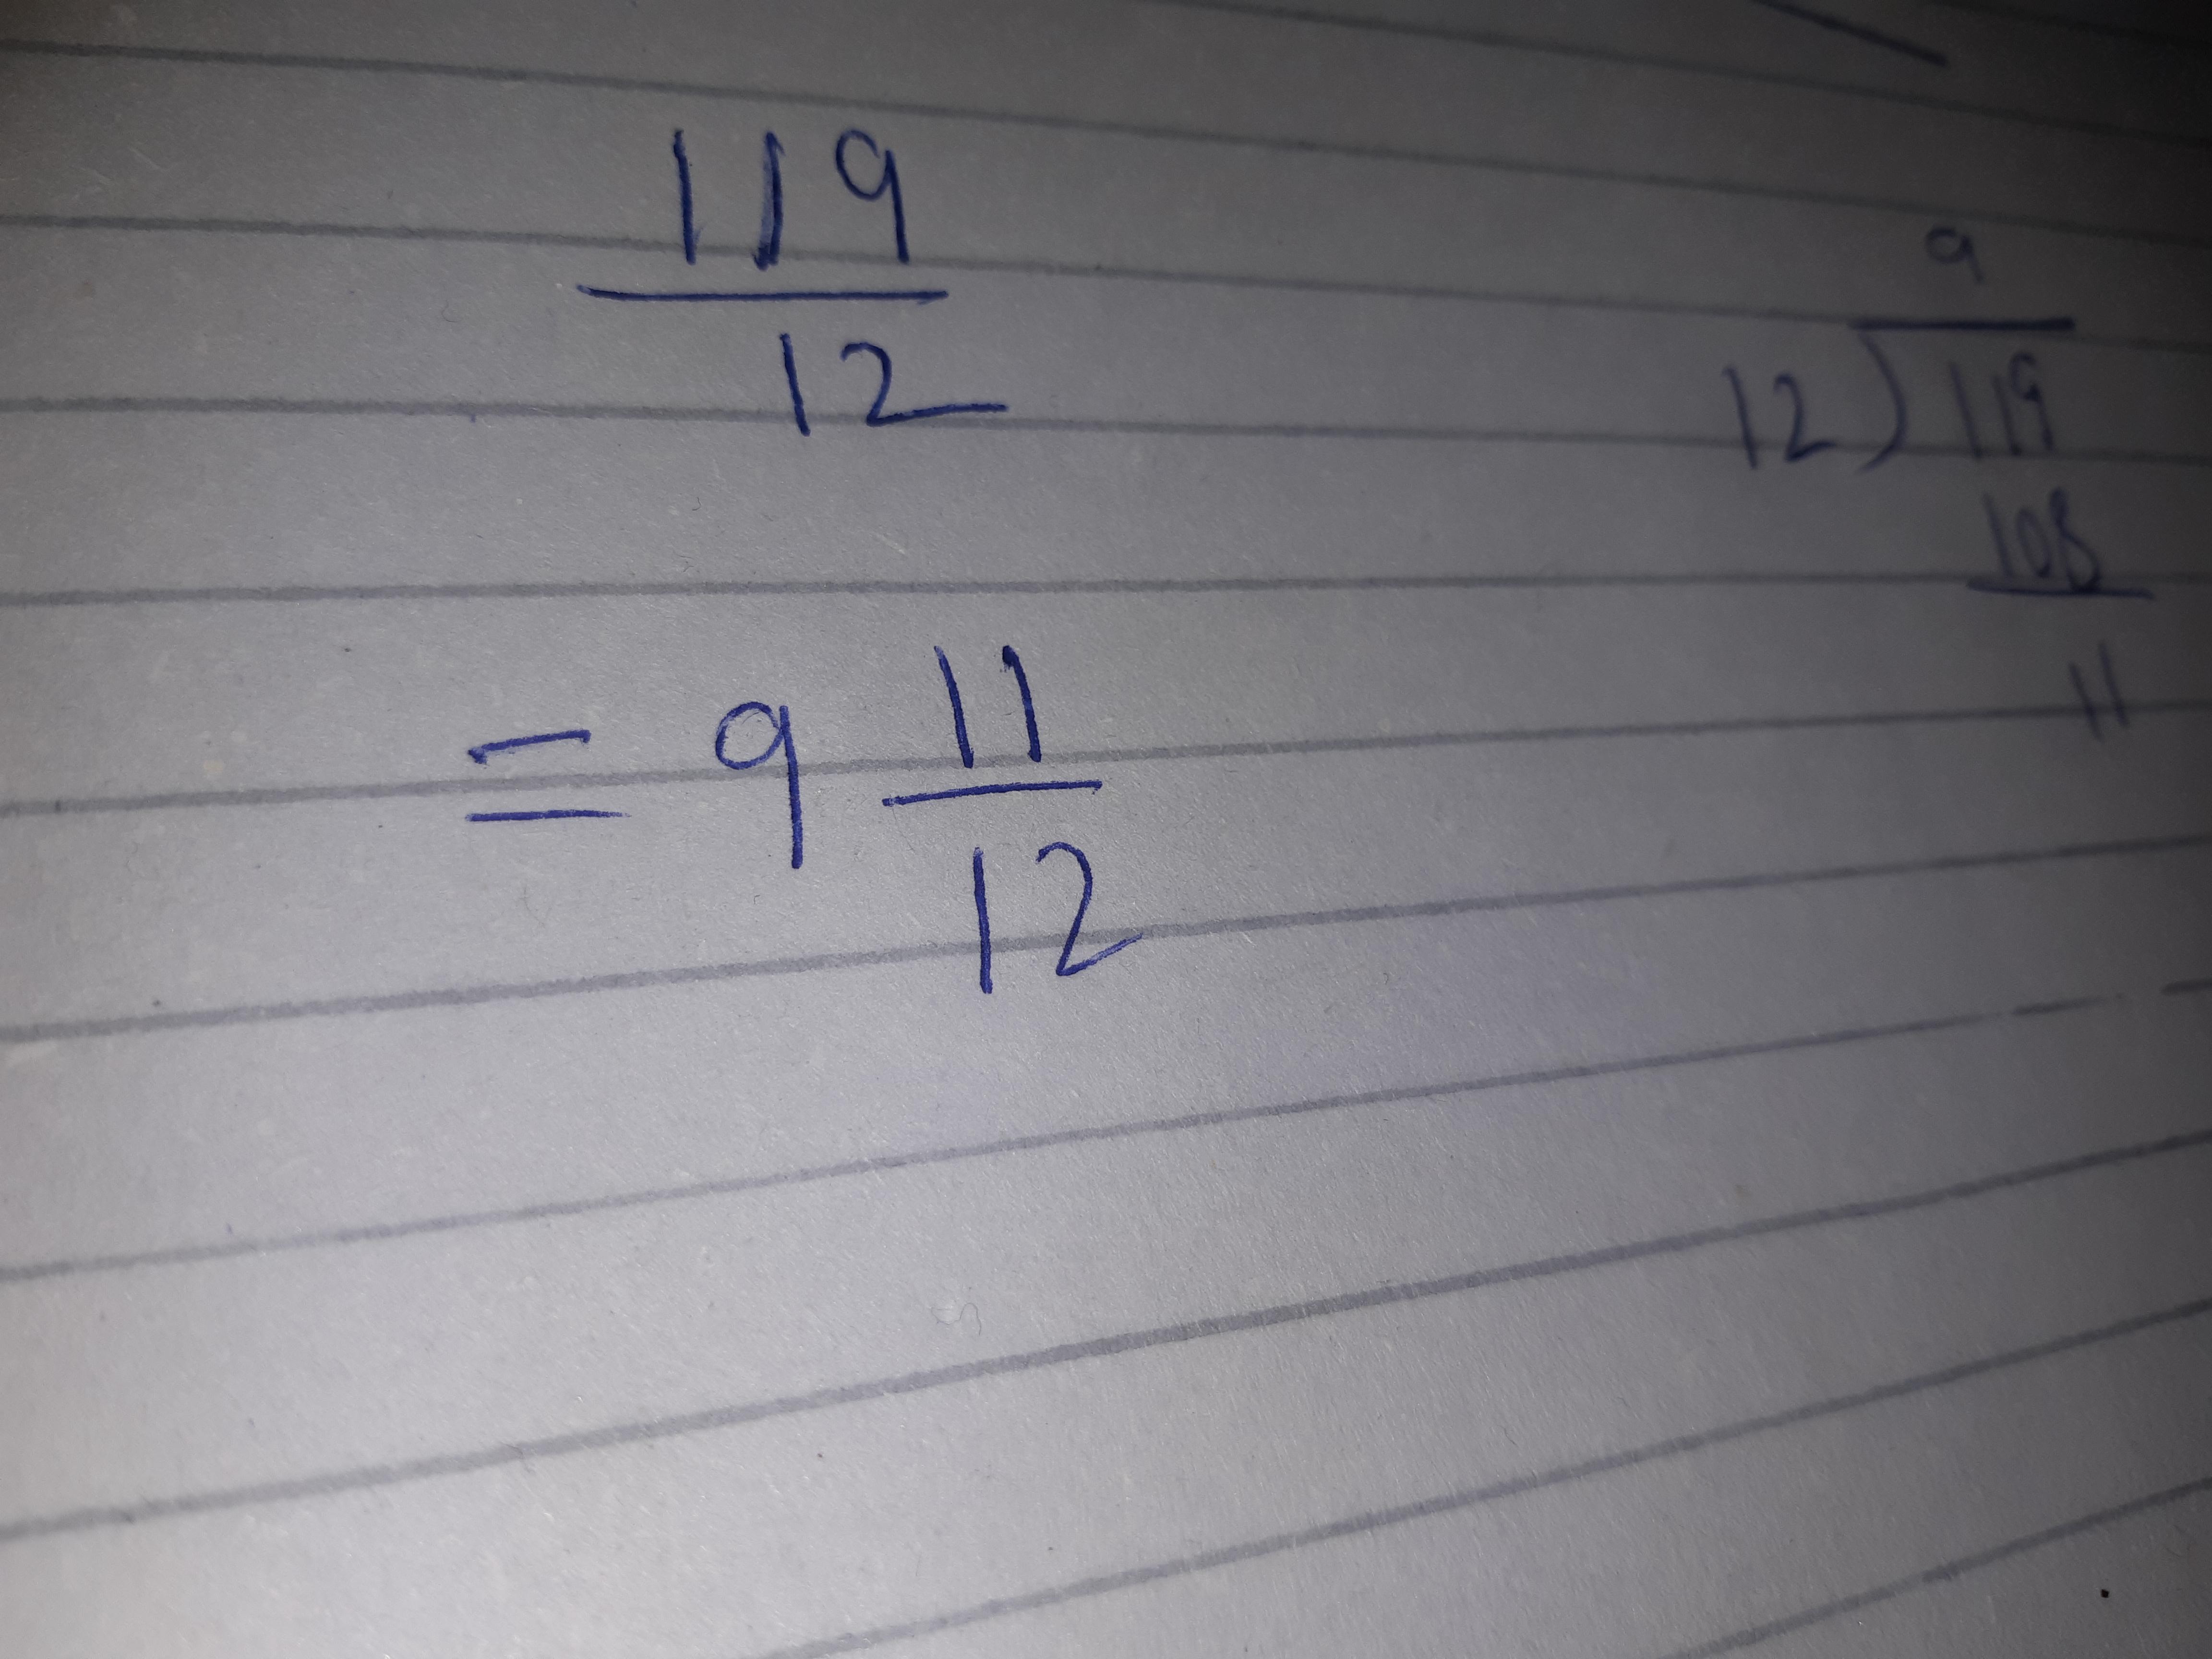 119
12
= 9 11
12
9
12 ) 119
108
11